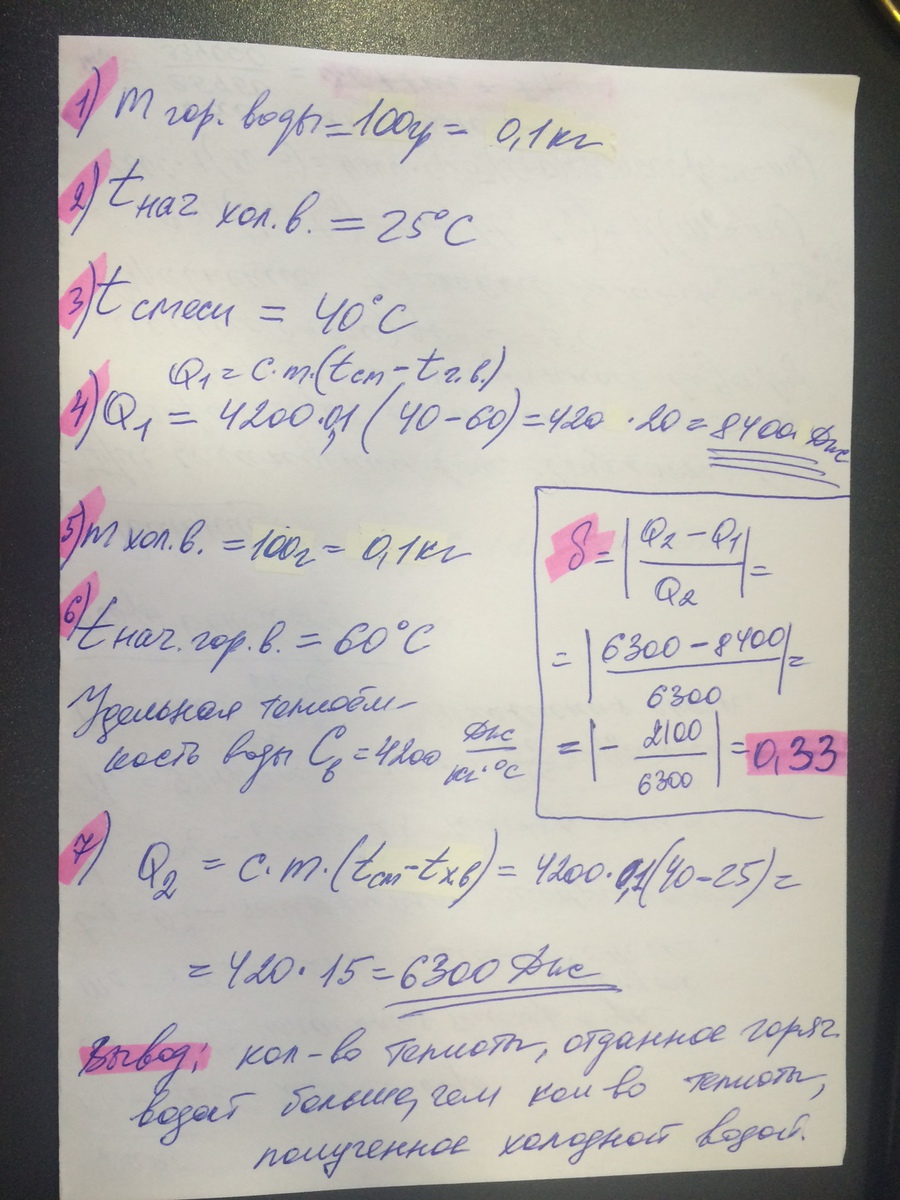 1) m гор. воды = 100гр = 0,1 кг
2) t нач. хол. в. = 25°C
3) t смеси = 40°C
Q1 = c.m.(tсм - tг.в.)
4) Q1 = 4200·0,1 (40-60) = 420 · 20 = 8400 Дж
5) m хол. в. = 100г = 0,1 кг
6) t нач. гор. в. = 60°C
Удельная теплоём-
кость воды Cв = 4200 Дж/кг·°C
δ = |(Q2 - Q1)/Q2| =
= |(6300 - 8400)/6300| =
= |- 2100/6300| = 0,33
7) Q2 = c.m.(tсм - tх.в) = 4200·0,1(40-25) =
= 420·15 = 6300 Дж
Вывод: кол-во теплоты, отданное горяч.
водой больше, чем кол во теплоты,
полученное холодной водой.